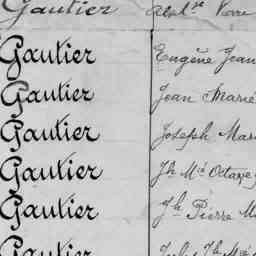 Gautier Pierre
Gautier Eugène Jean
Gautier Jean Marie
Gautier Joseph Mar
Gautier Jh Mie Octave
Gautier Jh Pierre M
Gautier Jules Jh Mie